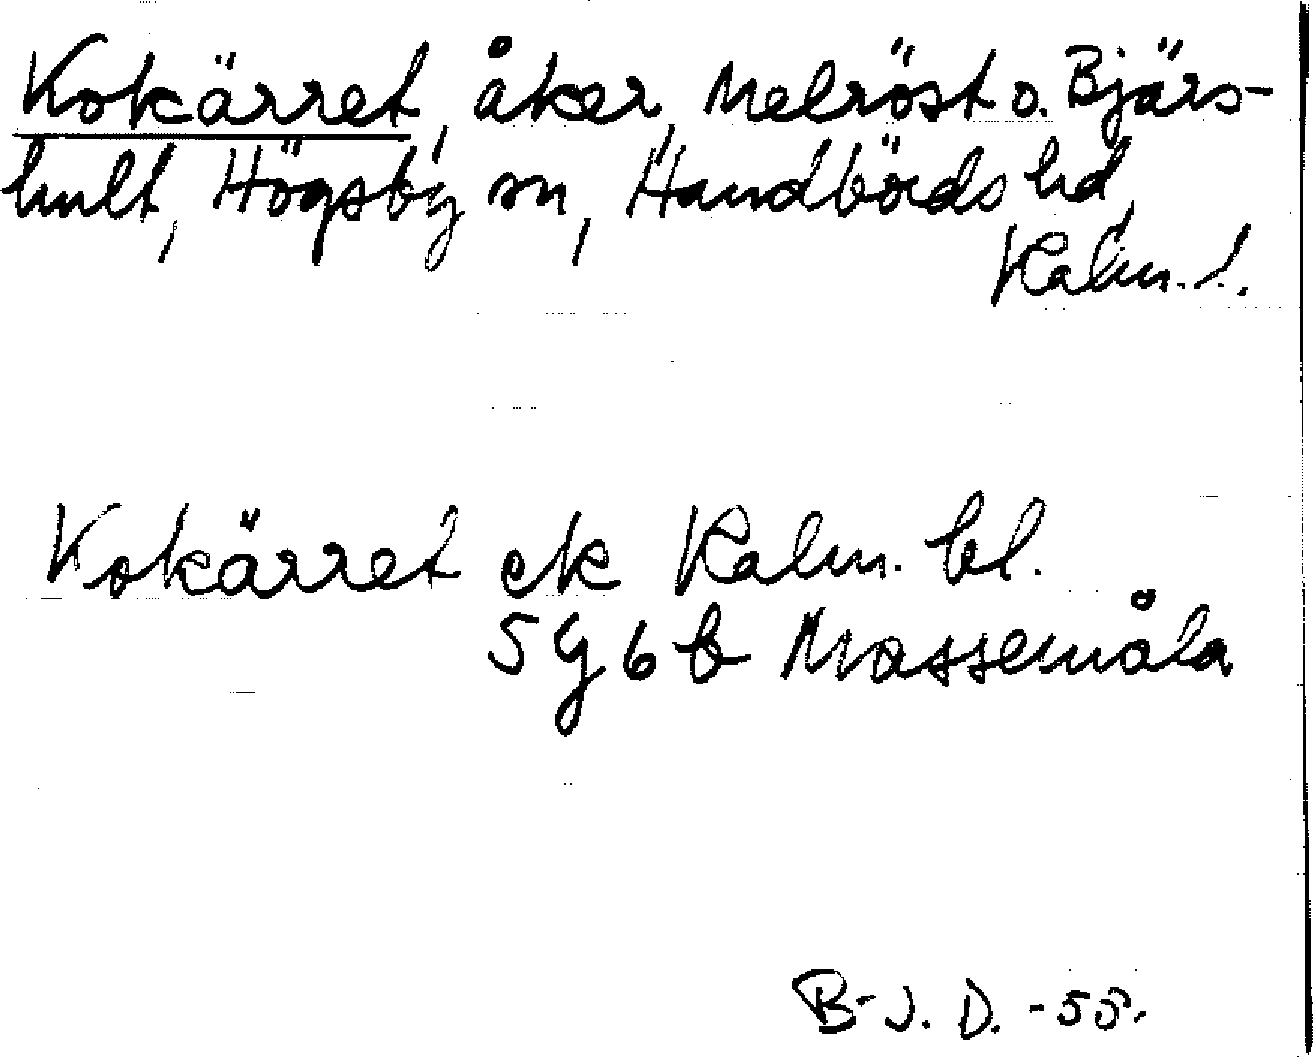 Kokärret, åker, Melröst o. Bjärs-
hult, Högsby sn, Handbörds hd,
Kalm. l.
Kokärret ek Kalm. bl.
5 G 6 b Massemåla
B-J. D. -58.